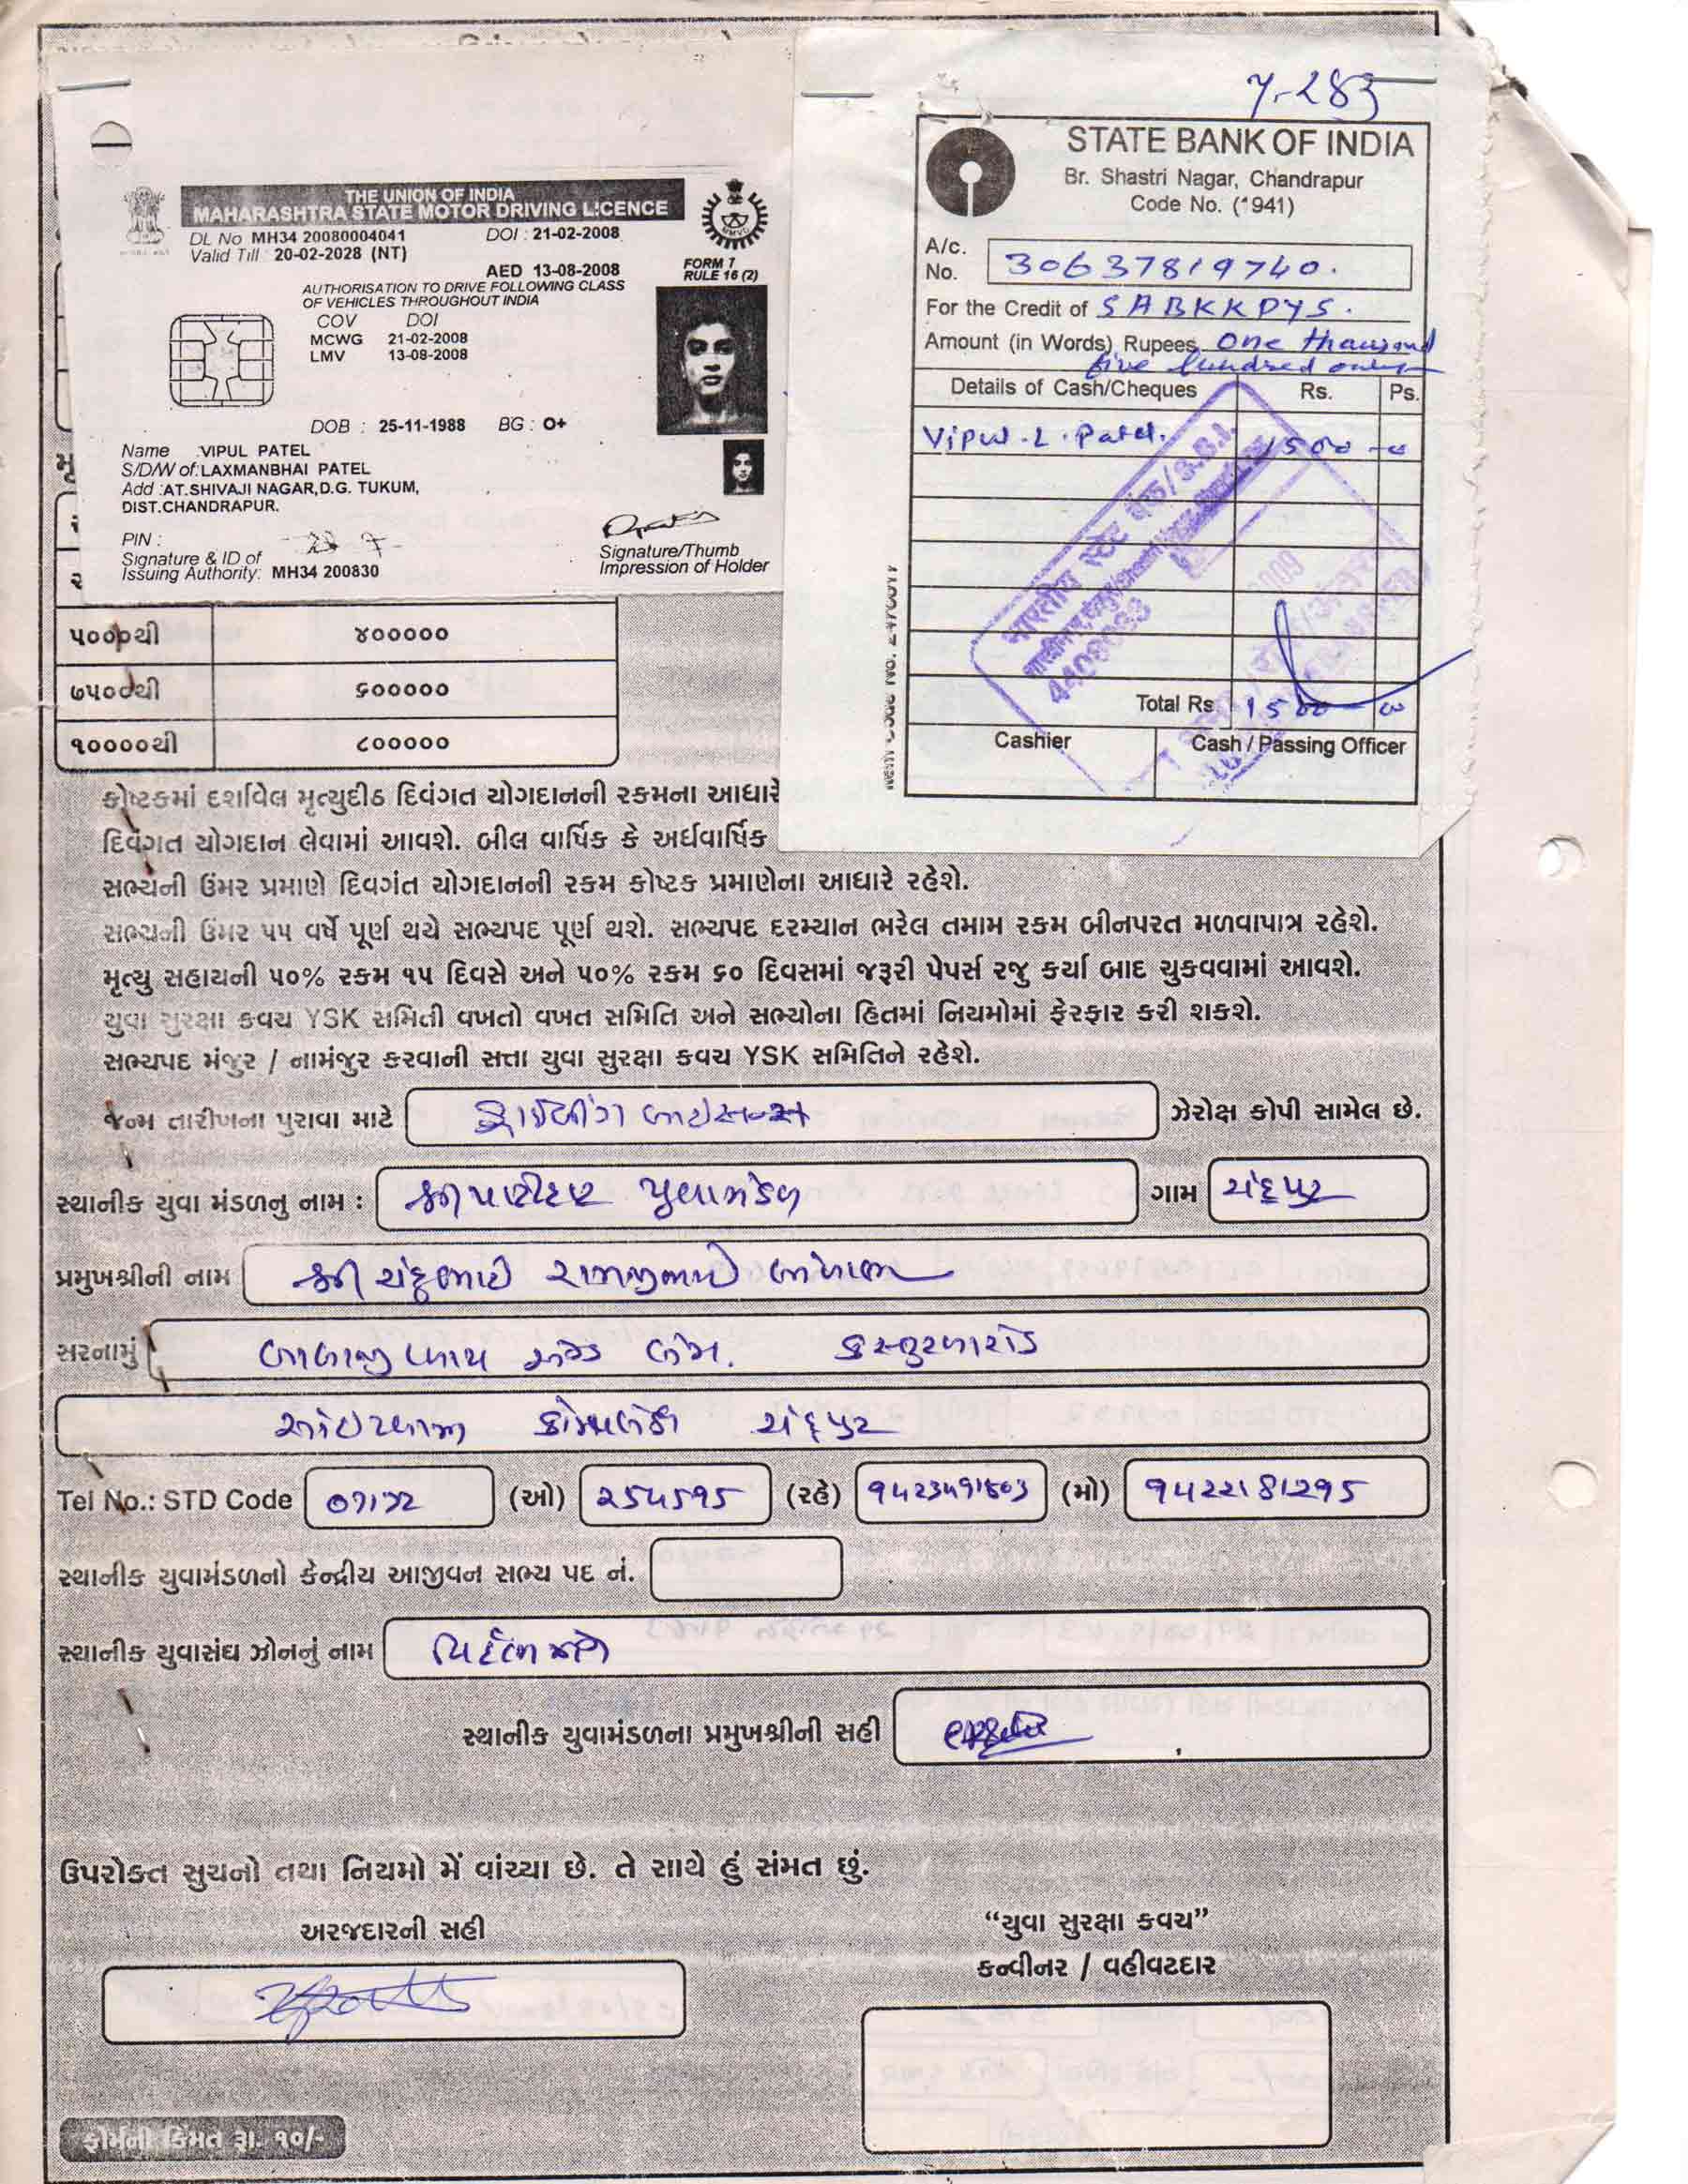 THE UNION OF INDIA
MAHARASHTRA STATE MOTOR DRIVING LICENCE
DL No MH34 20080004041 DOI : 21-02-2008
Valid Till 20-02-2028 (NT)
AED 13-08-2008
FORM 7
RULE 16 (2)
AUTHORISATION TO DRIVE FOLLOWING CLASS
OF VEHICLES THROUGHOUT INDIA
COV DOI
MCWG 21-02-2008
LMV 13-08-2008
DOB : 25-11-1988 BG : O+
Name : VIPUL PATEL
S/D/W of: LAXMANBHAI PATEL
Add :AT.SHIVAJI NAGAR,D.G. TUKUM,
DIST.CHANDRAPUR.
PIN :
Signature & ID of
Issuing Authority: MH34 200830
Signature/Thumb
Impression of Holder
Y-283
STATE BANK OF INDIA
Br. Shastri Nagar, Chandrapur
Code No. (1941)
A/c. No. 30637819740.
For the Credit of SABKKPYS.
Amount (in Words) Rupees One thausand
five hundred only
Details of Cash/Cheques Rs. Ps.
Vipul . L . Patel. 1500 -00
भारतीय स्टेट बैंक/S.B.I.
Total Rs 1500 - 00
Cashier Cash / Passing Officer
૫૦૦૦થી ૪૦૦૦૦૦
૭૫૦૦થી ૬૦૦૦૦૦
૧૦૦૦૦થી ૮૦૦૦૦૦
કોષ્ટકમાં દર્શાવેલ મૃત્યુદીઠ દિવંગત યોગદાનની રકમના આધારે
દિવંગત યોગદાન લેવામાં આવશે. બીલ વાર્ષિક કે અર્ધવાર્ષિક
સભ્યની ઉંમર પ્રમાણે દિવગંત યોગદાનની રકમ કોષ્ટક પ્રમાણેના આધારે રહેશે.
સભ્યની ઉંમર ૫૫ વર્ષે પૂર્ણ થયે સભ્યપદ પૂર્ણ થશે. સભ્યપદ દરમ્યાન ભરેલ તમામ રકમ બીનપરત મળવાપાત્ર રહેશે.
મૃત્યુ સહાયની ૫૦% રકમ ૧૫ દિવસે અને ૫૦% રકમ ૬૦ દિવસમાં જરૂરી પેપર્સ રજુ કર્યા બાદ ચુકવવામાં આવશે.
યુવા સુરક્ષા કવચ YSK સમિતી વખતો વખત સમિતિ અને સભ્યોના હિતમાં નિયમોમાં ફેરફાર કરી શકશે.
સભ્યપદ મંજુર / નામંજુર કરવાની સત્તા યુવા સુરક્ષા કવચ YSK સમિતિને રહેશે.
જન્મ તારીખના પુરાવા માટે ડ્રાઈવીંગ લાયસન્સ ઝેરોક્ષ કોપી સામેલ છે.
સ્થાનીક યુવા મંડળનુ નામ : શ્રી પાટીદાર યુવામંડળ ગામ ચંદ્રપુર
પ્રમુખશ્રીની નામ શ્રી ચંદુભાઈ રામજીભાઈ
સરનામું બાલાજી પ્લાય એન્ડ લેમ. કસ્તુરબારોડ
કોમ્પલેક્ષ ચંદ્રપુર
Tel No.: STD Code 07172 (ઓ) ૨૫૪૫૧૫ (રહે) (મો) ૧૪૨૨૧81૨૧૫
સ્થાનીક યુવામંડળનો કેન્દ્રીય આજીવન સભ્ય પદ નં.
સ્થાનીક યુવાસંઘ ઝોનનું નામ વિદર્ભ ઝોન
સ્થાનીક યુવામંડળના પ્રમુખશ્રીની સહી
ઉપરોક્ત સુચનો તથા નિયમો મેં વાંચ્યા છે. તે સાથે હું સંમત છું.
અરજદારની સહી
“યુવા સુરક્ષા કવચ”
કન્વીનર / વહીવટદાર
ફોર્મની કિંમત રૂા. ૧૦/-